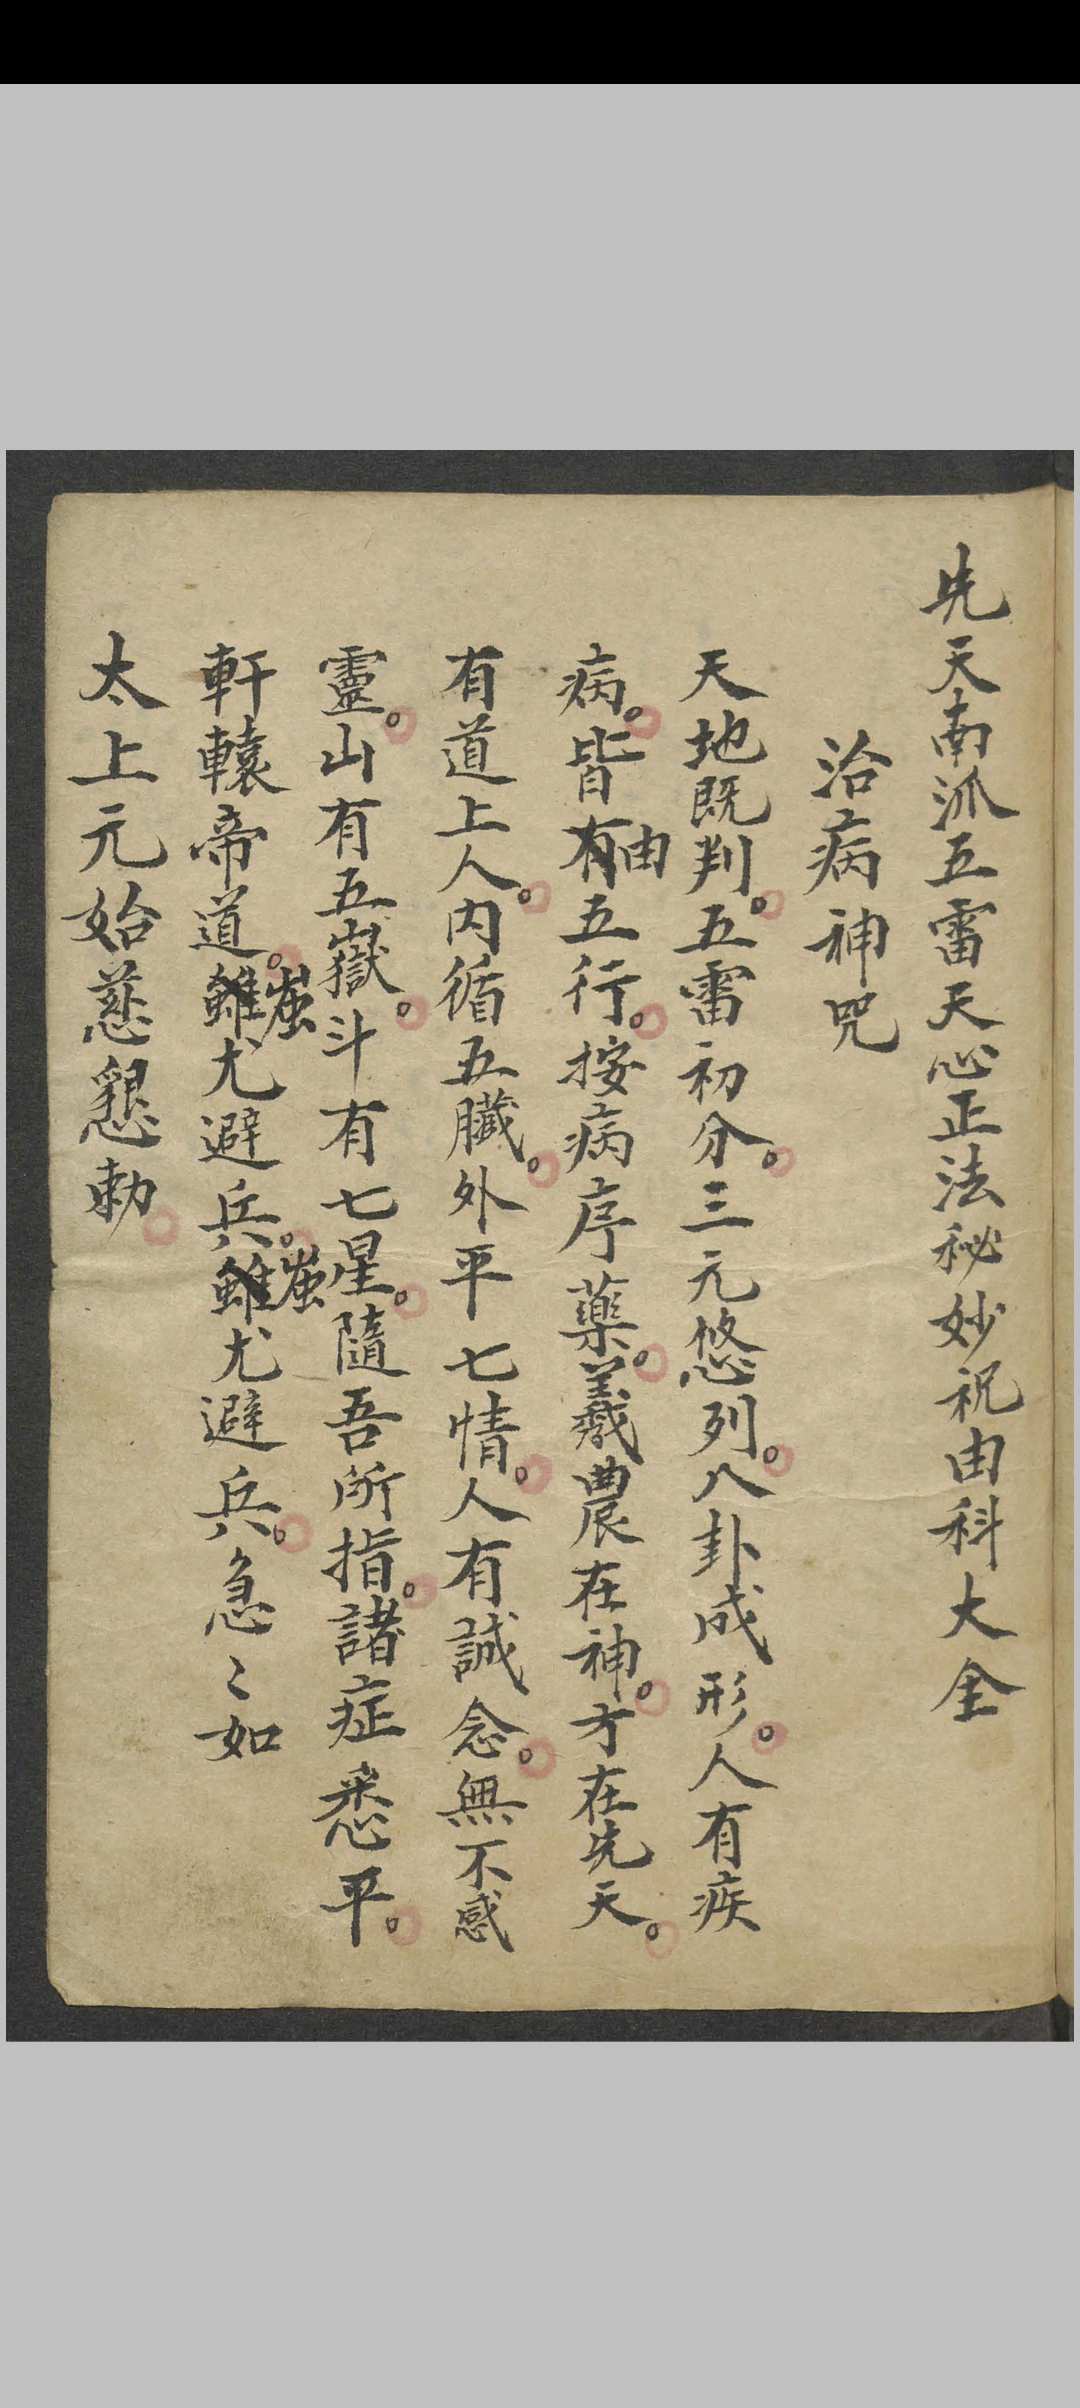 先天南派五雷天心正法秘妙祝由科大全
治病神咒
天地既判。五雷初分。三元悠列。八卦成形。人有疾
病。皆有由五行。按病序藥。羲農在神。方在先天。
有道上人。内循五臟。外平七情。人有誠念。無不感
靈。山有五嶽。斗有七星。隨吾所指。諸症悉平。
軒轅帝道。雖蚩尤避兵。雖蚩尤避兵。急〻如
太上元始慈懇勅